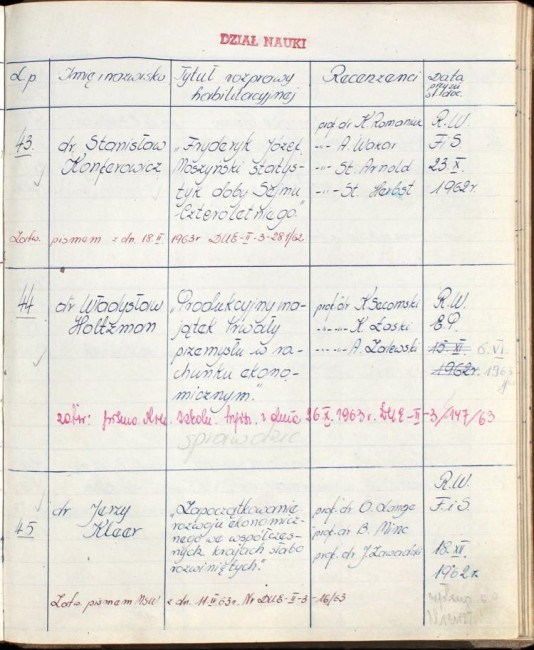 DZIAŁ NAUKI
L.p Imię i nazwisko Tytuł rozprawy habilitacyjnej Recenzenci Data
st. doc.
43. dr Stanisław Konferowicz
„Fryderyk Józef
Moszyński statys-
tyk doby Sejmu
Czteroletniego"
prof. dr K Romaniuk
-"- A. Wakar
-"- St. Arnold
-"- St. Herbst
R.W.
F i S
23. X.
1962r.
Zatw. pismem z dn. 18.II 1963r DUE-II-3-281/62
44 dr Władysław Holtzman
„Produkcyjny ma-
jątek trwały
przemysłu w ra-
chunku ekono-
micznym."
prof. dr K Secomski
-"- -"- K Łaski
-"- -"- A. Zalewski
R.W.
E.P.
15. XI. 6. VI.
1962r. 1963
zatw: pismo Min. Szkoln. Wyższ. z dnia 26 IX. 1963r. DUE-II-3/147/63
sprawdzić
45 dr Jerzy Kleer
„Zapoczątkowanie
rozwoju ekonomicz-
nego we współczes-
nych krajach słabo
rozwiniętych."
prof. dr O. Lange
prof. dr B. Minc
prof. dr J. Zawadzki
R.W.
F. i S.
18. XII.
1962r.
Zatw. pismem z dn. 11.II.63r. Nr DUE-II-3-16/63